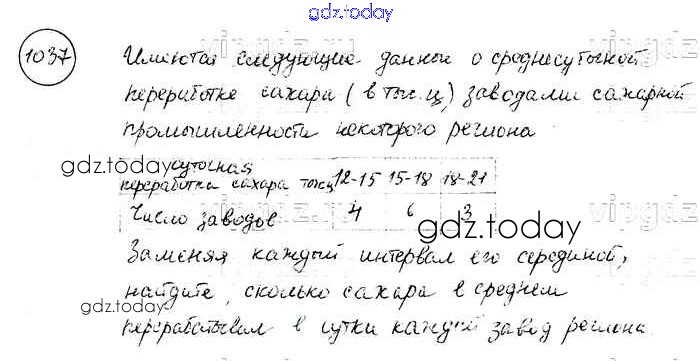 gdz.today
1037 Имеются следующие данные о среднесуточной
переработке сахара (в тыс. ц) заводами сахарной
промышленности некоторого региона
gdz.today
суточная
переработка сахара тыс.ц 12-15 15-18 18-21
Число заводов 4 6 3
gdz.today
Заменяя каждый интервал его серединой,
найдите, сколько сахара в среднем
gdz.today
перерабатывал в сутки каждый завод региона.